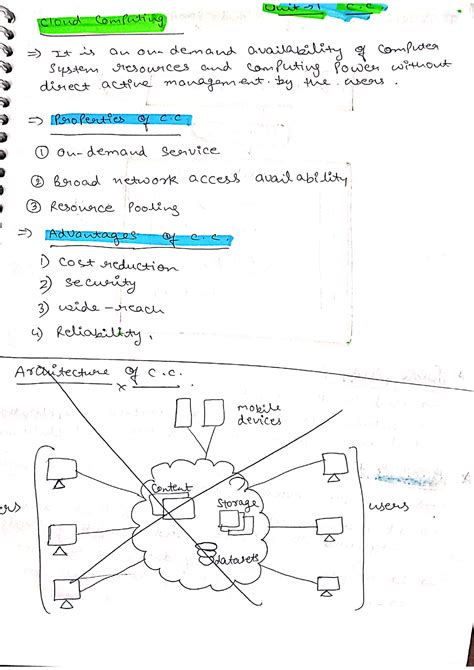 Unit-1 C.C.
Cloud Computing
⇒ It is an on-demand availability of computer
System resources and computing power without
direct active management by the users.
⇒ Properties of C.C.
① On-demand Service
② Broad network access availability
③ Resource Pooling
⇒ Advantages of C.C.
1) Cost reduction
2) Security
3) wide-reach
4) Reliability.
Architecture of C.C.
mobile
devices
Content
Storage
users
datasets